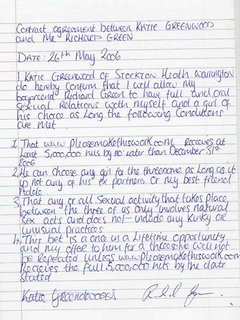 Contract agreement between KATIE GREENWOOD
and Mr RICHARD GREEN
DATE: 26th May 2006
I KATIE Greenwood of Stockton Heath Warrington
do hereby confirm that I will allow my
boyfriend Richard Green to have full and oral
Sexual Relations with myself and a girl of
his choice as long the following conditions
are met
1. That www.pleasemakethiswork.com Receives at
least 5,000,000 hits by no later than December 31st
2006
2. He can choose any girl for the threesome as long as it
is not any of his ex partners or my best friend
3. That any or all Sexual activity that takes place
between the three of us only involves natural
sex acts and does not include any kinky or
unusual practices
4. This bet is a once in a lifetime opportunity
and my offer to him for a threesome will not
be repeated unless www.pleasemakethiswork.com
Recieves the full 5,000,000 hits by the date
stated
Katie Greenwood